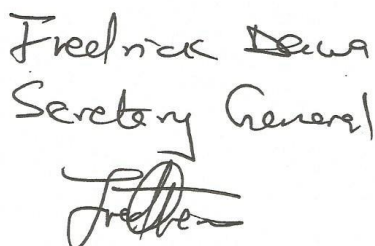 Fredrick Dewa
Secretary General